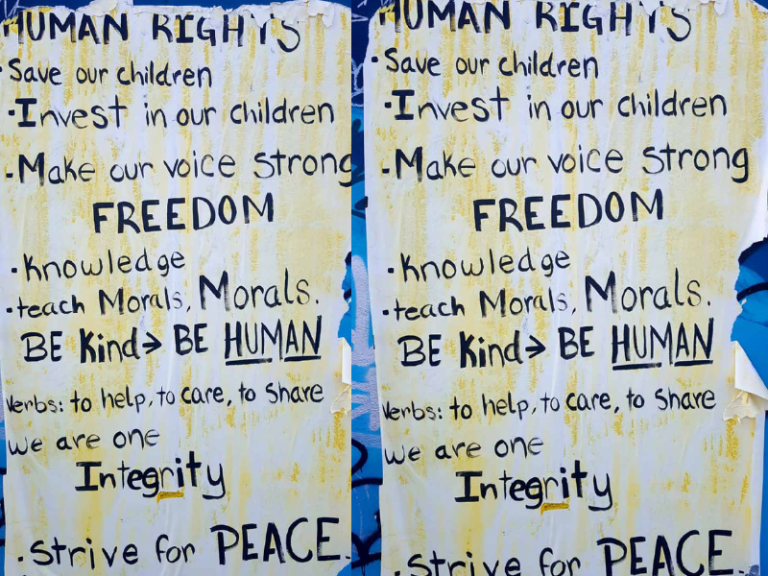 HUMAN RIGHTS
• Save our children
• Invest in our children
• Make our voice strong
FREEDOM
• Knowledge
• teach Morals, Morals.
BE Kind → BE HUMAN
Verbs: to help, to care, to share
we are one
Integrity
• Strive for PEACE.
HUMAN RIGHTS
• Save our children
• Invest in our children
• Make our voice strong
FREEDOM
• Knowledge
• teach Morals, Morals.
BE Kind → BE HUMAN
Verbs: to help, to care, to share
we are one
Integrity
• Strive for PEACE.